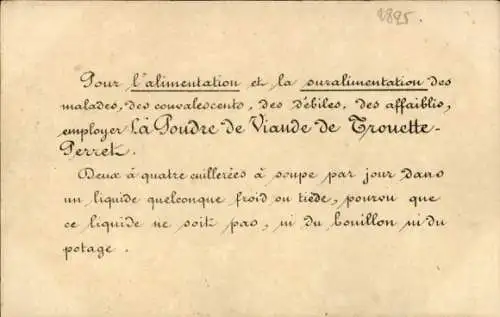 2895
Pour l'alimentation et la suralimentation des
malades, des convalescents, des débiles, des affaiblis,
employer La Poudre de Viande de Trouette-
Perret.
Deux à quatre cuillerées à soupe par jour dans
un liquide quelconque froid ou tiède, pourvu que
ce liquide ne soit pas, ni du bouillon ni du
potage.